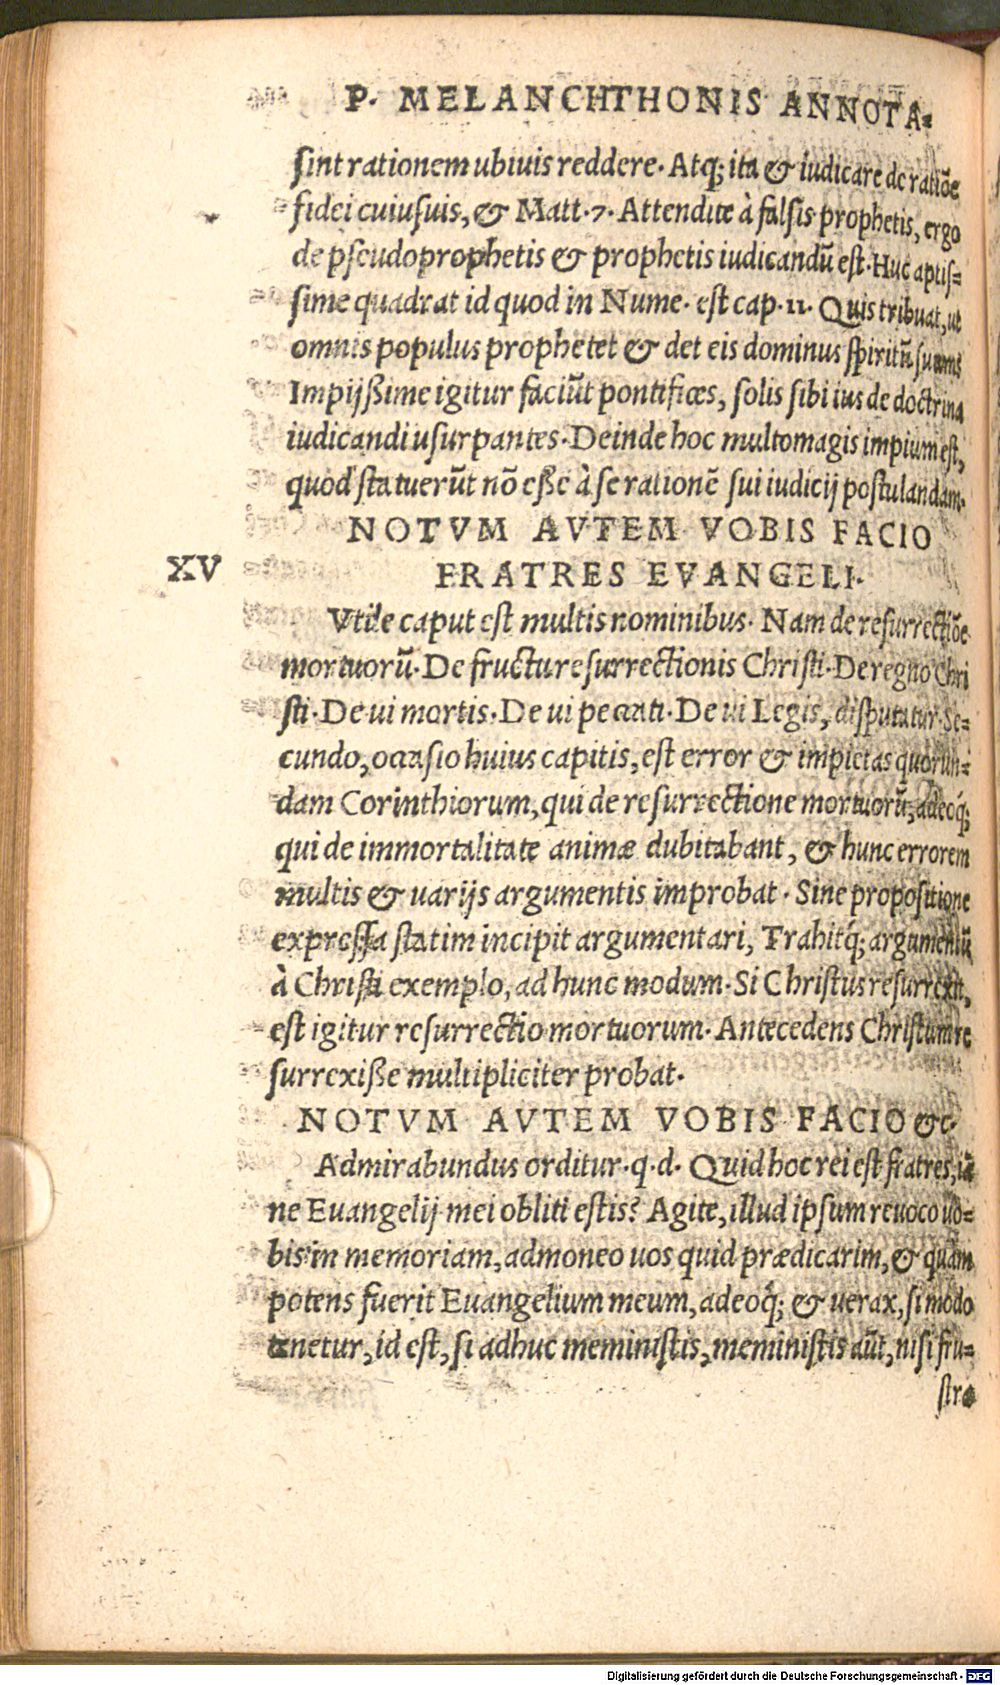 P. MELANCHTHONIS ANNOTA-
sint rationem ubiuis reddere. Atq; ita & iudicare de ratiõe
fidei cuiusuis, & Matt. 7. Attendite à falsis prophetis, ergo
de pseudoprophetis & prophetis iudicandũ est. Huc aptis-
sime quadrat id quod in Nume. est cap. 11. Quis tribuat, ut
omnis populus prophetet & det eis dominus spiritũ suum:
Impijßime igitur faciũt pontifices, solis sibi ius de doctrina
iudicandi usurpantes. Deinde hoc multomagis impium est,
quod statuerũt nõ eße à se rationẽ sui iudicij postulandam.
NOTVM AVTEM VOBIS FACIO
XV FRATRES EVANGELI.
Vtile caput est multis nominibus. Nam de resurrectiõe
mortuorũ. De fructu resurrectionis Christi. De regno Chri
sti. De ui mortis. De ui peccati. De ui Legis, disputatur. Se-
cundo, occasio huius capitis, est error & impietas quorun-
dam Corinthiorum, qui de resurrectione mortuorũ, adeoq́;
qui de immortalitate animæ dubitabant, & hunc errorem
multis & uarijs argumentis improbat. Sine propositione
expressa statim incipit argumentari, Trahitq́; argumentũ
à Christi exemplo, ad hunc modum. Si Christus resurrexit,
est igitur resurrectio mortuorum. Antecedens Christum re
surrexiße multipliciter probat.
NOTVM AVTEM VOBIS FACIO &c.
Admirabundus orditur. q. d. Quid hoc rei est fratres, iã
ne Euangelij mei obliti estis? Agite, illud ipsum reuoco uo-
bis in memoriam, admoneo uos quid prædicarim, & quàm
potens fuerit Euangelium meum, adeoq́; & uerax, si modo
tenetur, id est, si adhuc meministis, meministis aũt, nisi fru-
stra
Digitalisierung gefördert durch die Deutsche Forschungsgemeinschaft - DFG